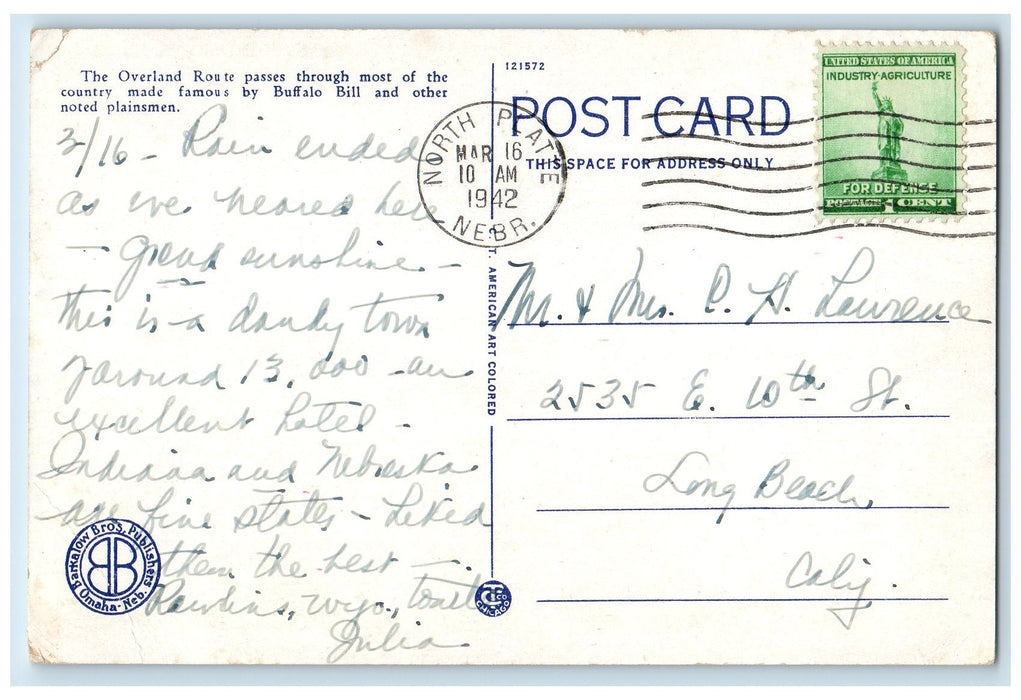 The Overland Route passes through most of the
country made famous by Buffalo Bill and other
noted plainsmen.
3/16 - Rain ended
as we neared here
- Great sunshine -
this is a dandy town
around 13,000 - an
excellent hotel -
Indiana and Nebraska
are fine states - Liked
them the best -
Rawlins, Wyo., tonite
Julia
Barkalow Bros. Publishers
Omaha - Neb.
121572
POST CARD
THIS SPACE FOR ADDRESS ONLY
NORTH PLATTE
MAR 16
10 AM
1942
NEBR.
UNITED STATES OF AMERICA
INDUSTRY·AGRICULTURE
FOR DEFENSE
1 CENT
C. T. AMERICAN ART COLORED
CHICAGO
Mr. & Mrs. C. H. Lawrence
2535 E. 10th St.
Long Beach,
Calif.